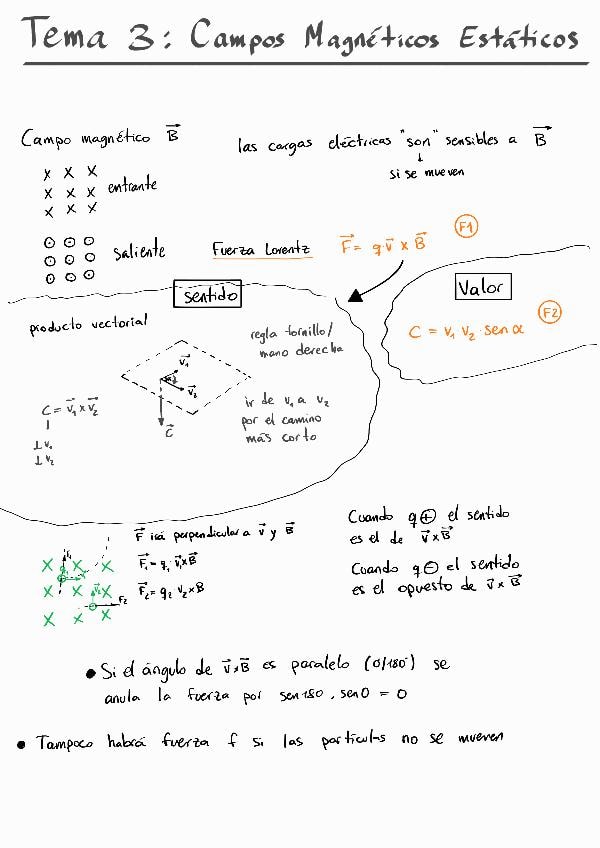 Tema 3: Campos Magnéticos Estáticos
Campo magnético B⃗
las cargas eléctricas "son" sensibles a B⃗
↓
si se mueven
x x x
x x x
x x x
entrante
⊙ ⊙ ⊙
⊙ ⊙ ⊙
⊙ ⊙ ⊙
saliente
Fuerza Lorentz
F⃗ = q·v⃗ x B⃗
F1
sentido
producto vectorial
regla tornillo/
mano derecha
v⃗₁
v⃗₂
C⃗
C = v⃗₁ x v⃗₂
⊥ v₁
⊥ v₂
ir de v₁ a v₂
por el camino
más corto
Valor
F2
C = v₁ v₂ · sen α
F⃗ irá perpendicular a v⃗ y B⃗
F⃗₁ = q₁ · v⃗₁ x B⃗
F⃗₂ = q₂ v₂ x B
x x x
x x x
x x x
F₂
Cuando q ⊕ el sentido
es el de v⃗ x B⃗
Cuando q ⊖ el sentido
es el opuesto de v⃗ x B⃗
• Si el ángulo de v⃗ x B⃗ es paralelo (0/180°) se
anula la fuerza por sen 180, sen 0 = 0
• Tampoco habrá fuerza f si las particulas no se mueven